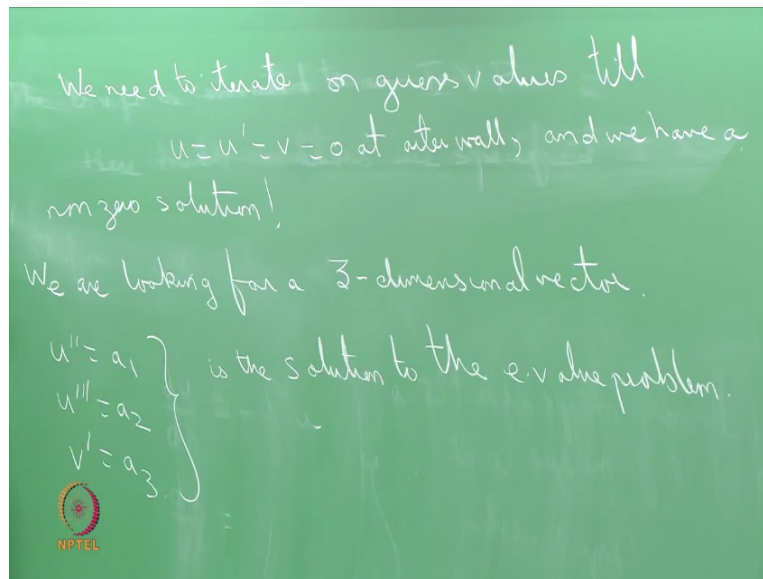 We need to iterate on guess values till
u = u' = v = 0 at outer wall, and we have a
non zero solution!
We are looking for a 3-dimensional vector.
u'' = a₁ } is the solution to the e.value problem.
u''' = a₂
v' = a₃.
=
NPTEL